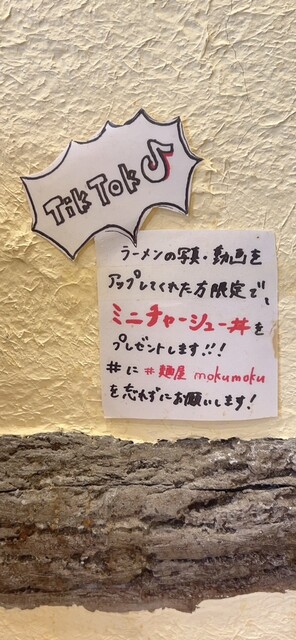 TikTok
ラーメンの写真・動画を
アップしてくれた方限定で、
ミニチャーシュー丼を
プレゼントします!!!
#に #麺屋 mokumoku
を忘れずにお願いします!